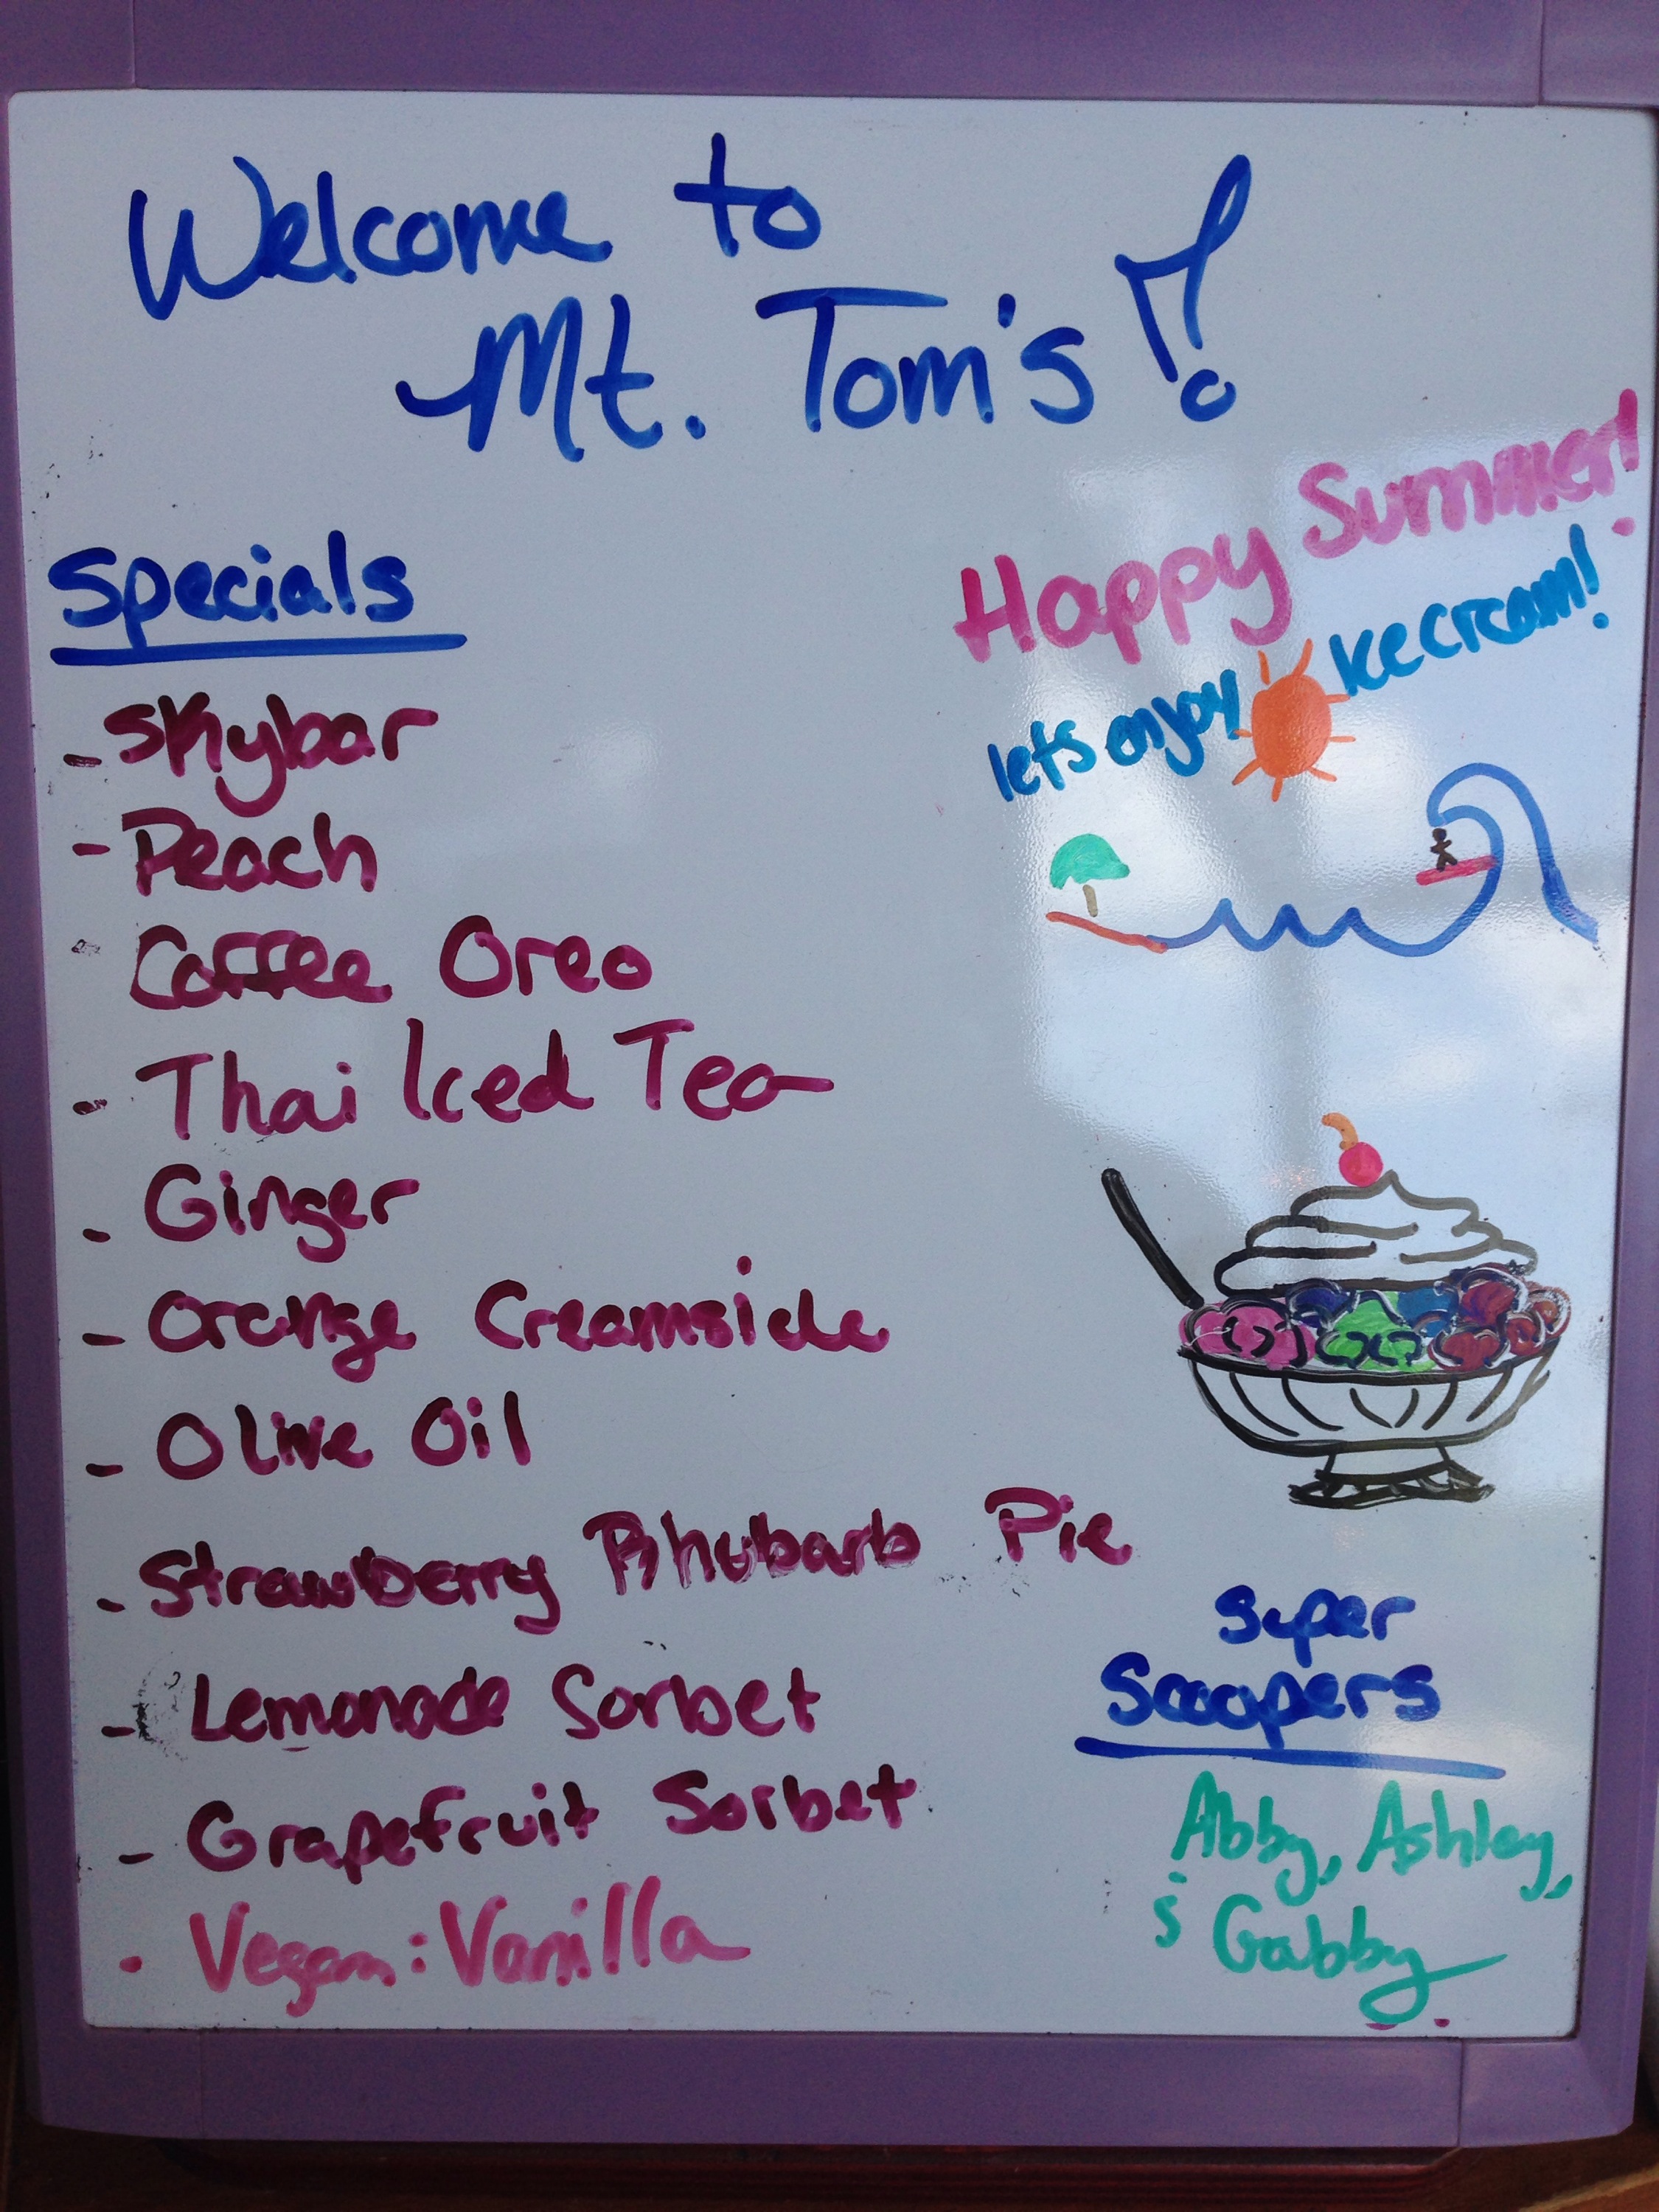 Welcome to
Mt. Tom's!
Specials
- Skybar
- Peach
- Coffee Oreo
- Thai Iced Tea
- Ginger
- Orange Creamsicle
- Olive Oil
- Strawberry Rhubarb Pie
- Lemonade Sorbet
- Grapefruit Sorbet
- Vegan: Vanilla
Happy Summer!
lets enjoy Ice cream!
Super
Scoopers
Abby, Ashley,
& Gabby